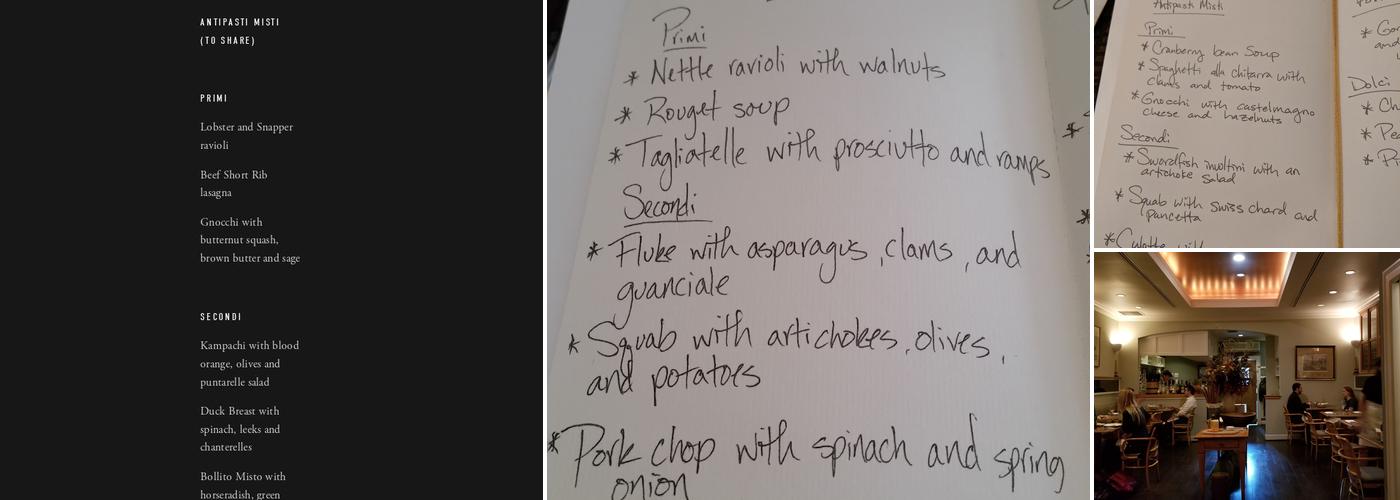 ANTIPASTI MISTI
(TO SHARE)
PRIMI
Lobster and Snapper
ravioli
Beef Short Rib
lasagna
Gnocchi with
butternut squash,
brown butter and sage
SECONDI
Kampachi with blood
orange, olives and
puntarelle salad
Duck Breast with
spinach, leeks and
chanterelles
Bollito Misto with
horseradish, green
Primi
* Nettle ravioli with walnuts
* Rouget soup
* Tagliatelle with prosciutto and ramps
Secondi
* Fluke with asparagus, clams, and
guanciale
* Squab with artichokes, olives,
and potatoes
* Pork chop with spinach and spring
onion
Antipasti Misti
Primi
* Cranberry bean Soup
* Spaghetti alla chitarra with
clams and tomato
* Gnocchi with castelmagno
cheese and hazelnuts
Secondi
* Swordfish involtini with an
artichoke salad
* Squab with swiss chard and
pancetta
Dolci